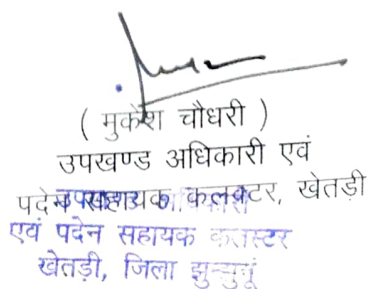 ( मुकेश चौधरी )
उपखण्ड अधिकारी एवं
पदेन सहायक कलक्टर, खेतड़ी
उपखण्ड अधिकारी
एवं पदेन सहायक कलक्टर
खेतड़ी, जिला झुन्झुनूं